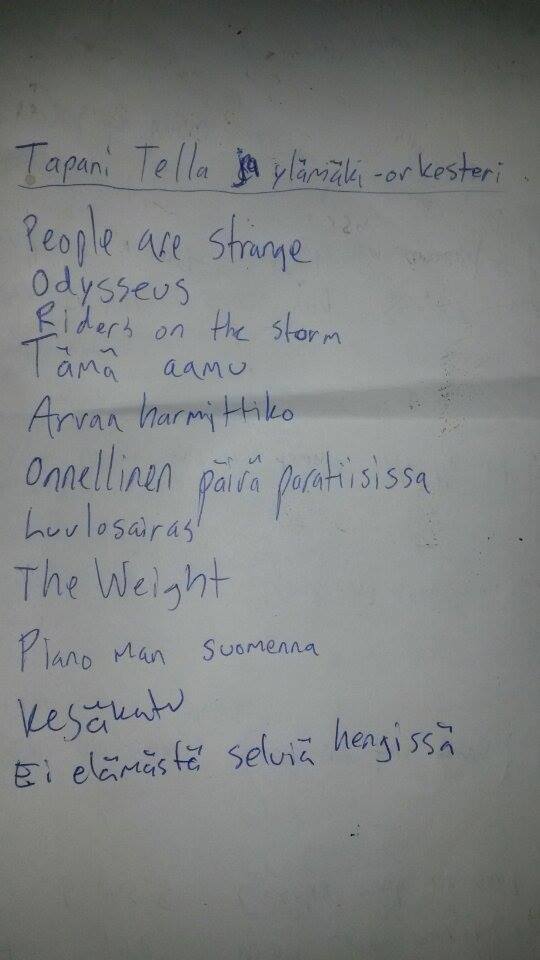 Tapani Tella ja ylämäki-orkesteri
People are strange
Odysseus
Riders on the storm
Tämä aamu
Arvaa harmittiko
Onnellinen päivä paratiisissa
Luulosairas
The Weight
Piano Man suomenna
Kesäkatu
Ei elämästä selviä hengissä